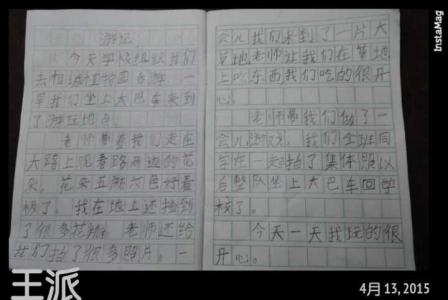 游记
今天学校组织我们
去相城植物园春游一
早我们坐上大巴车来到
了游玩地点。
老师带着我们走在
大路上观看路两边的花
朵。花朵五颜六色好看
极了。我在地上还捡到
了很多花瓣。老师还给
我们拍了很多照片。一
会儿我们来到了一片大
草地老师让我们在草地
上吃东西我们吃的很开
心。
老师带我们做了一
会儿游戏。我们全班同
学在一起拍了集体照以
后整队坐上大巴车回学
校了。
今天一天我玩的很
开心。
王派
4月13,2015
InstaMag